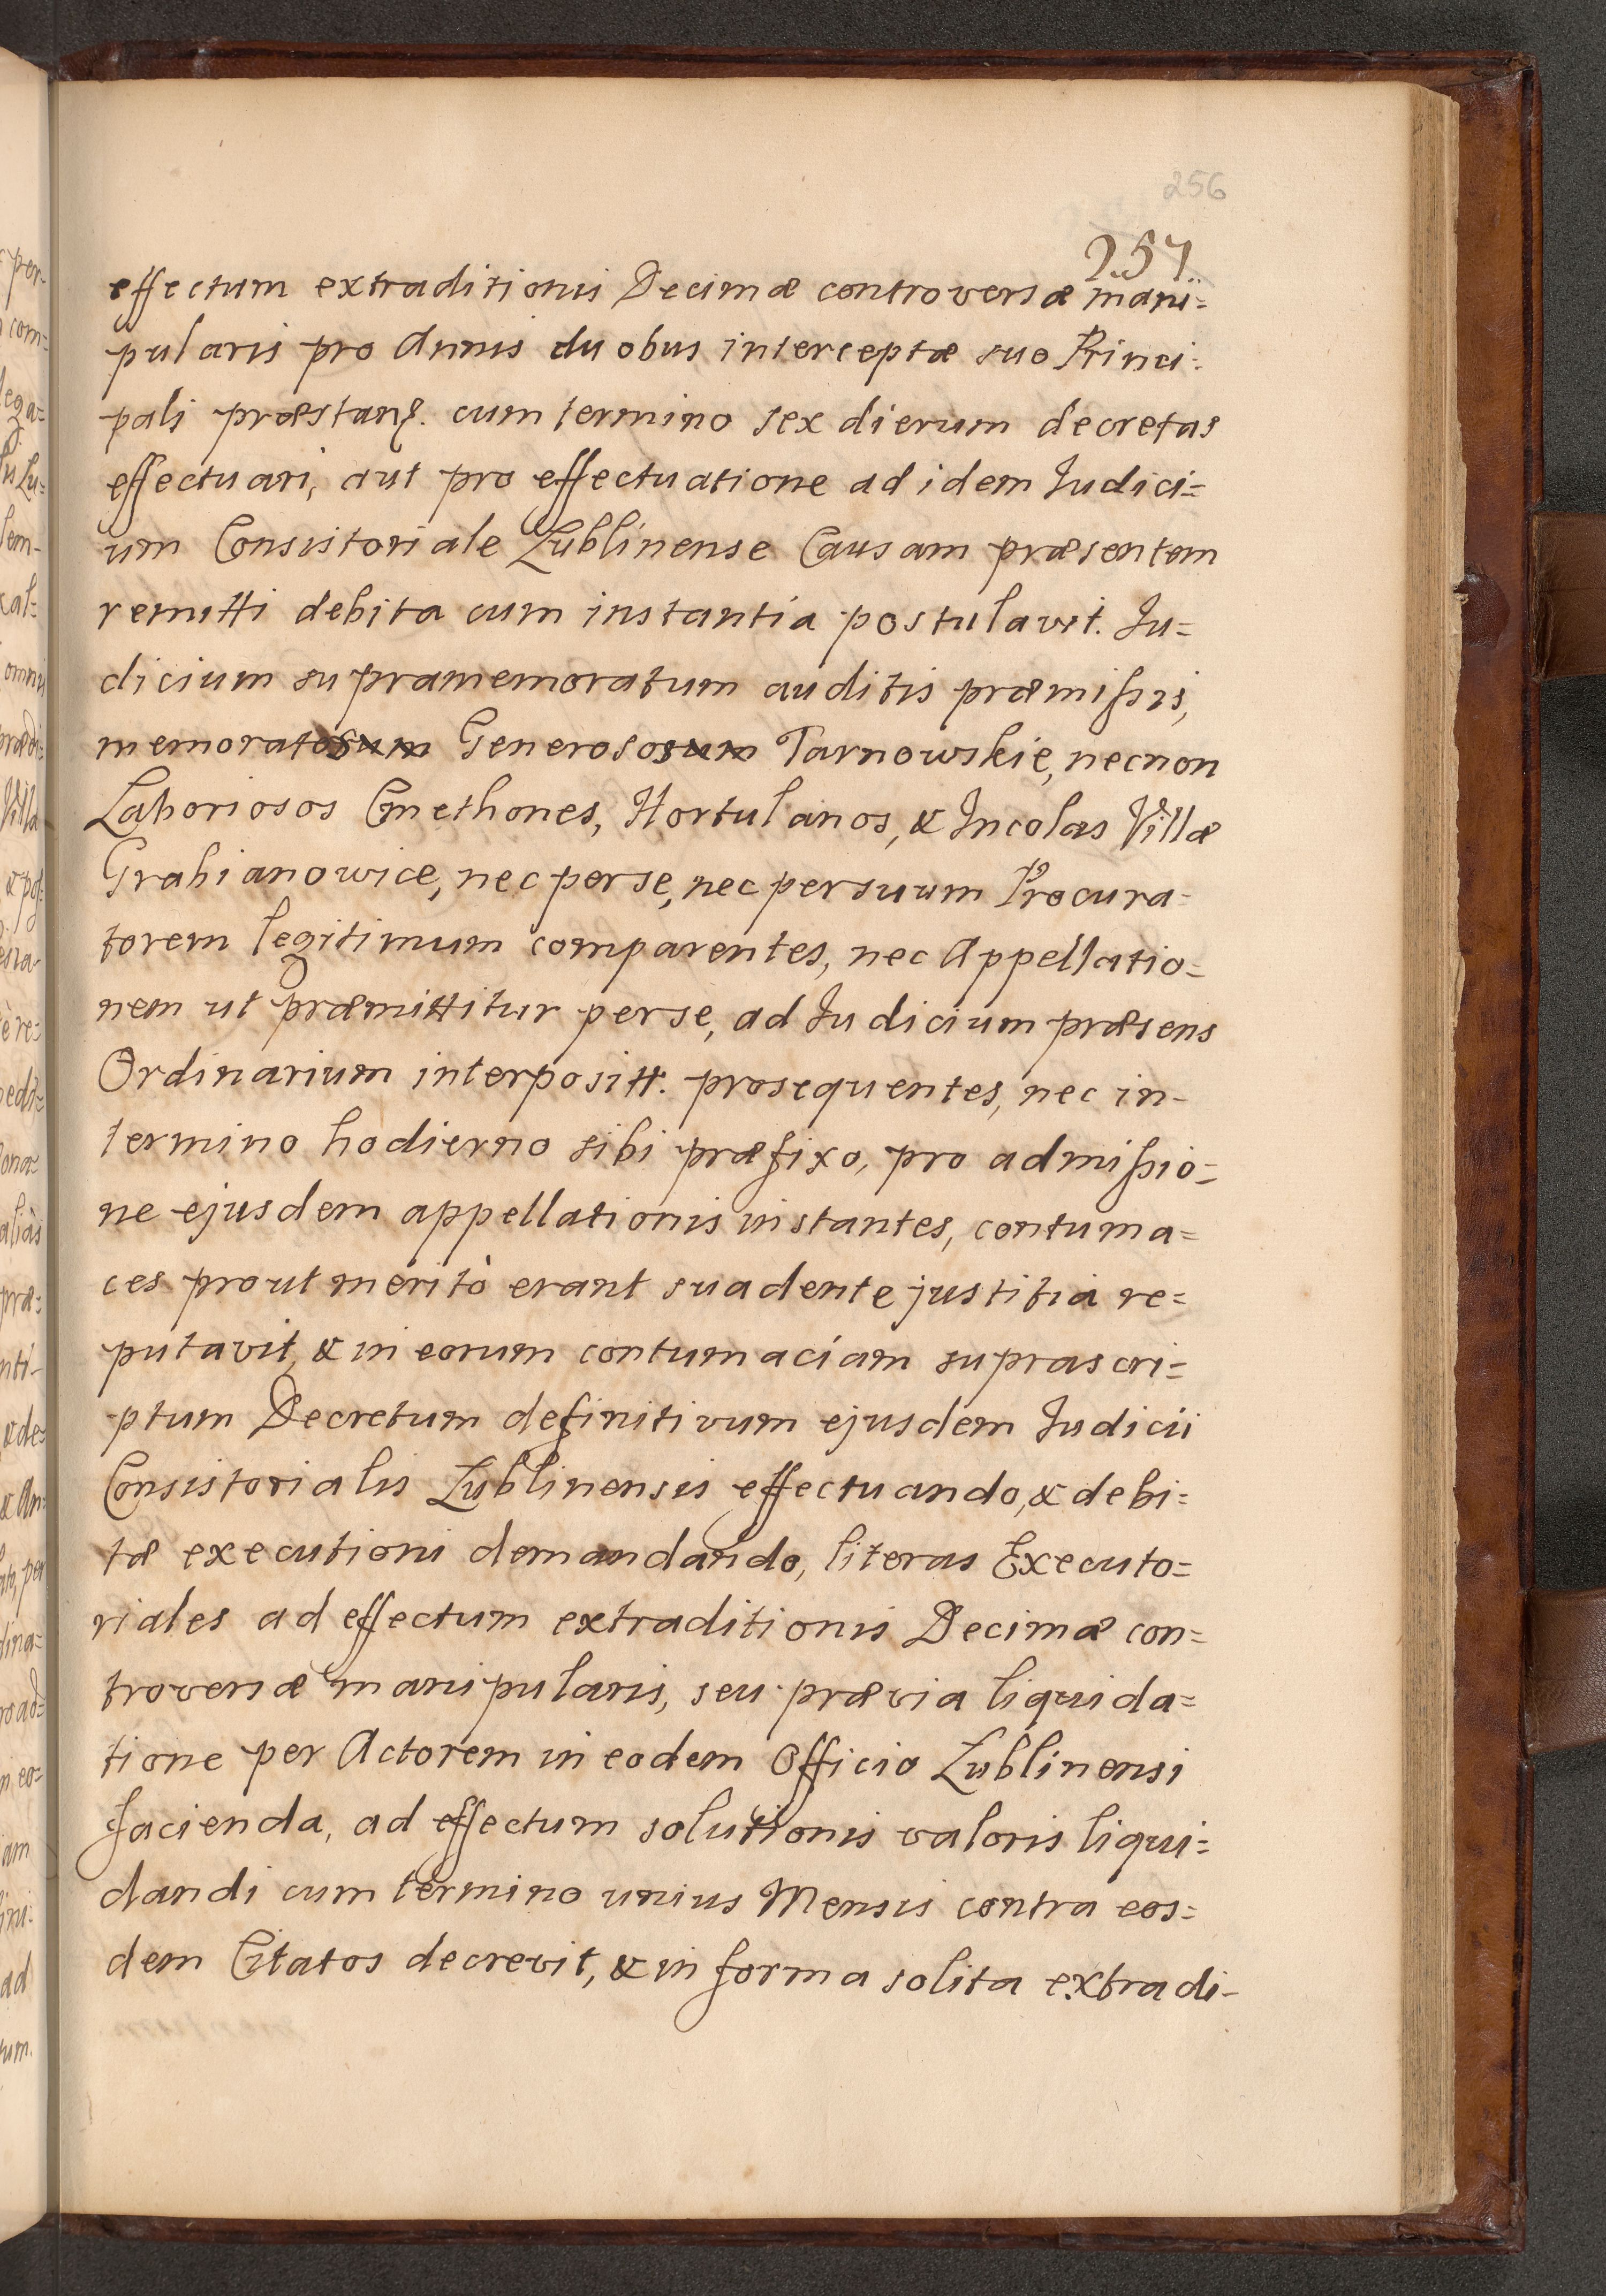 256
257.
effectum extraditionis Decimæ controversæ mani=
pularis pro Annis duobus interceptæ suo Princi=
pali præstan. cum termino sex dierum decretas
effectuari, aut pro effectuatione ad idem Judici=
um Consistoriale Lublinense Causam præsentem
remitti debita cum instantia postulavit. Ju=
dicium supramemoratum auditis præmißis,
memoratosum Generososum Tarnowskie, necnon
Laboriosos Cmethones, Hortulanos, & Incolas Villæ
Grabianowice, nec per se, nec per suum Procura=
torem legitimum comparentes, nec Appellatio=
nem ut præmittitur per se, ad Judicium præsens
Ordinarium interpositt. prosequentes, nec in-
termino hodierno sibi præfixo, pro admißio=
ne ejusdem appellationis instantes, contuma=
ces prout meritò erant suadente justitia re=
putavit, & in eorum contumaciam suprascri=
ptum Decretum definitivum ejusdem Judicii
Consistorialis Lublinensis effectuando, & debi=
tæ executioni demandando, literas Executo=
riales ad effectum extraditionis Decimæ con=
troversæ manipularis, seu prævia liquida=
tione per Actorem in eodem Officio Lublinensi
facienda, ad effectum solutionis valoris liqui=
dandi cum termino unius Mensis contra eos=
dem Citatos decrevit, & in forma solita extradi-